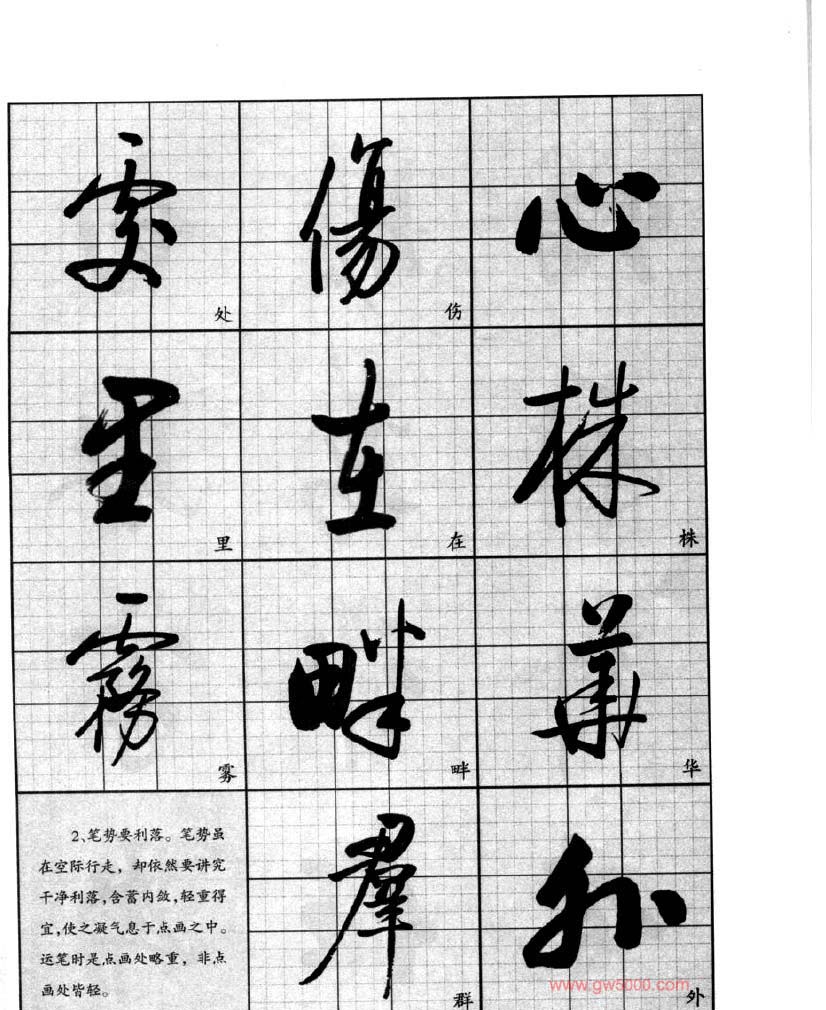 處 傷 心
处 伤
里 在 株
里 在 株
霧 畔 華
雾 畔 华
群 外
群 外
2、笔势要利落。笔势虽
在空际行走，却依然要讲究
干净利落，含蓄内敛，轻重得
宜，使之凝气息于点画之中。
运笔时是点画处略重，非点
画处皆轻。
www.gw5000.com